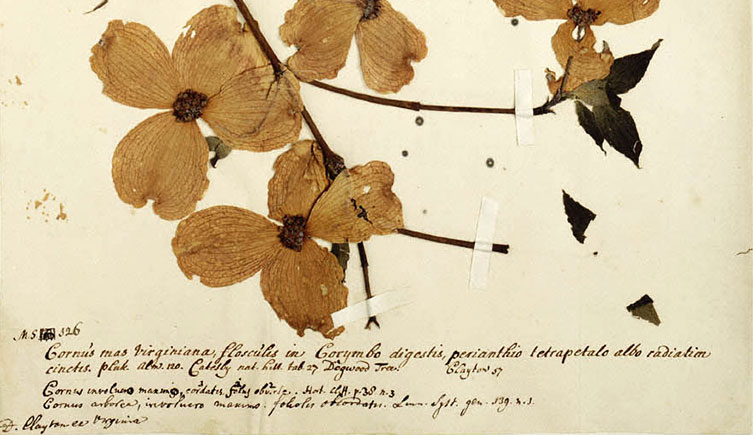 M.S. 126
Cornus mas Virginiana, flosculis in Corymbo digestis, perianthio tetrapetalo albo radiatim
cinctis. pluk. alm. no. Catesby nat. hist. tab 27 Dogwood Tree. Clayton 57
Cornus involucro maximo, foliis obverse. Hort. Cliff. p. 38 n. 3
Cornus arborea, involucro maximo: foliolis obcordatis. Linn. Syst. gen. 139. n. 1.
D. Clayton ex Virginia